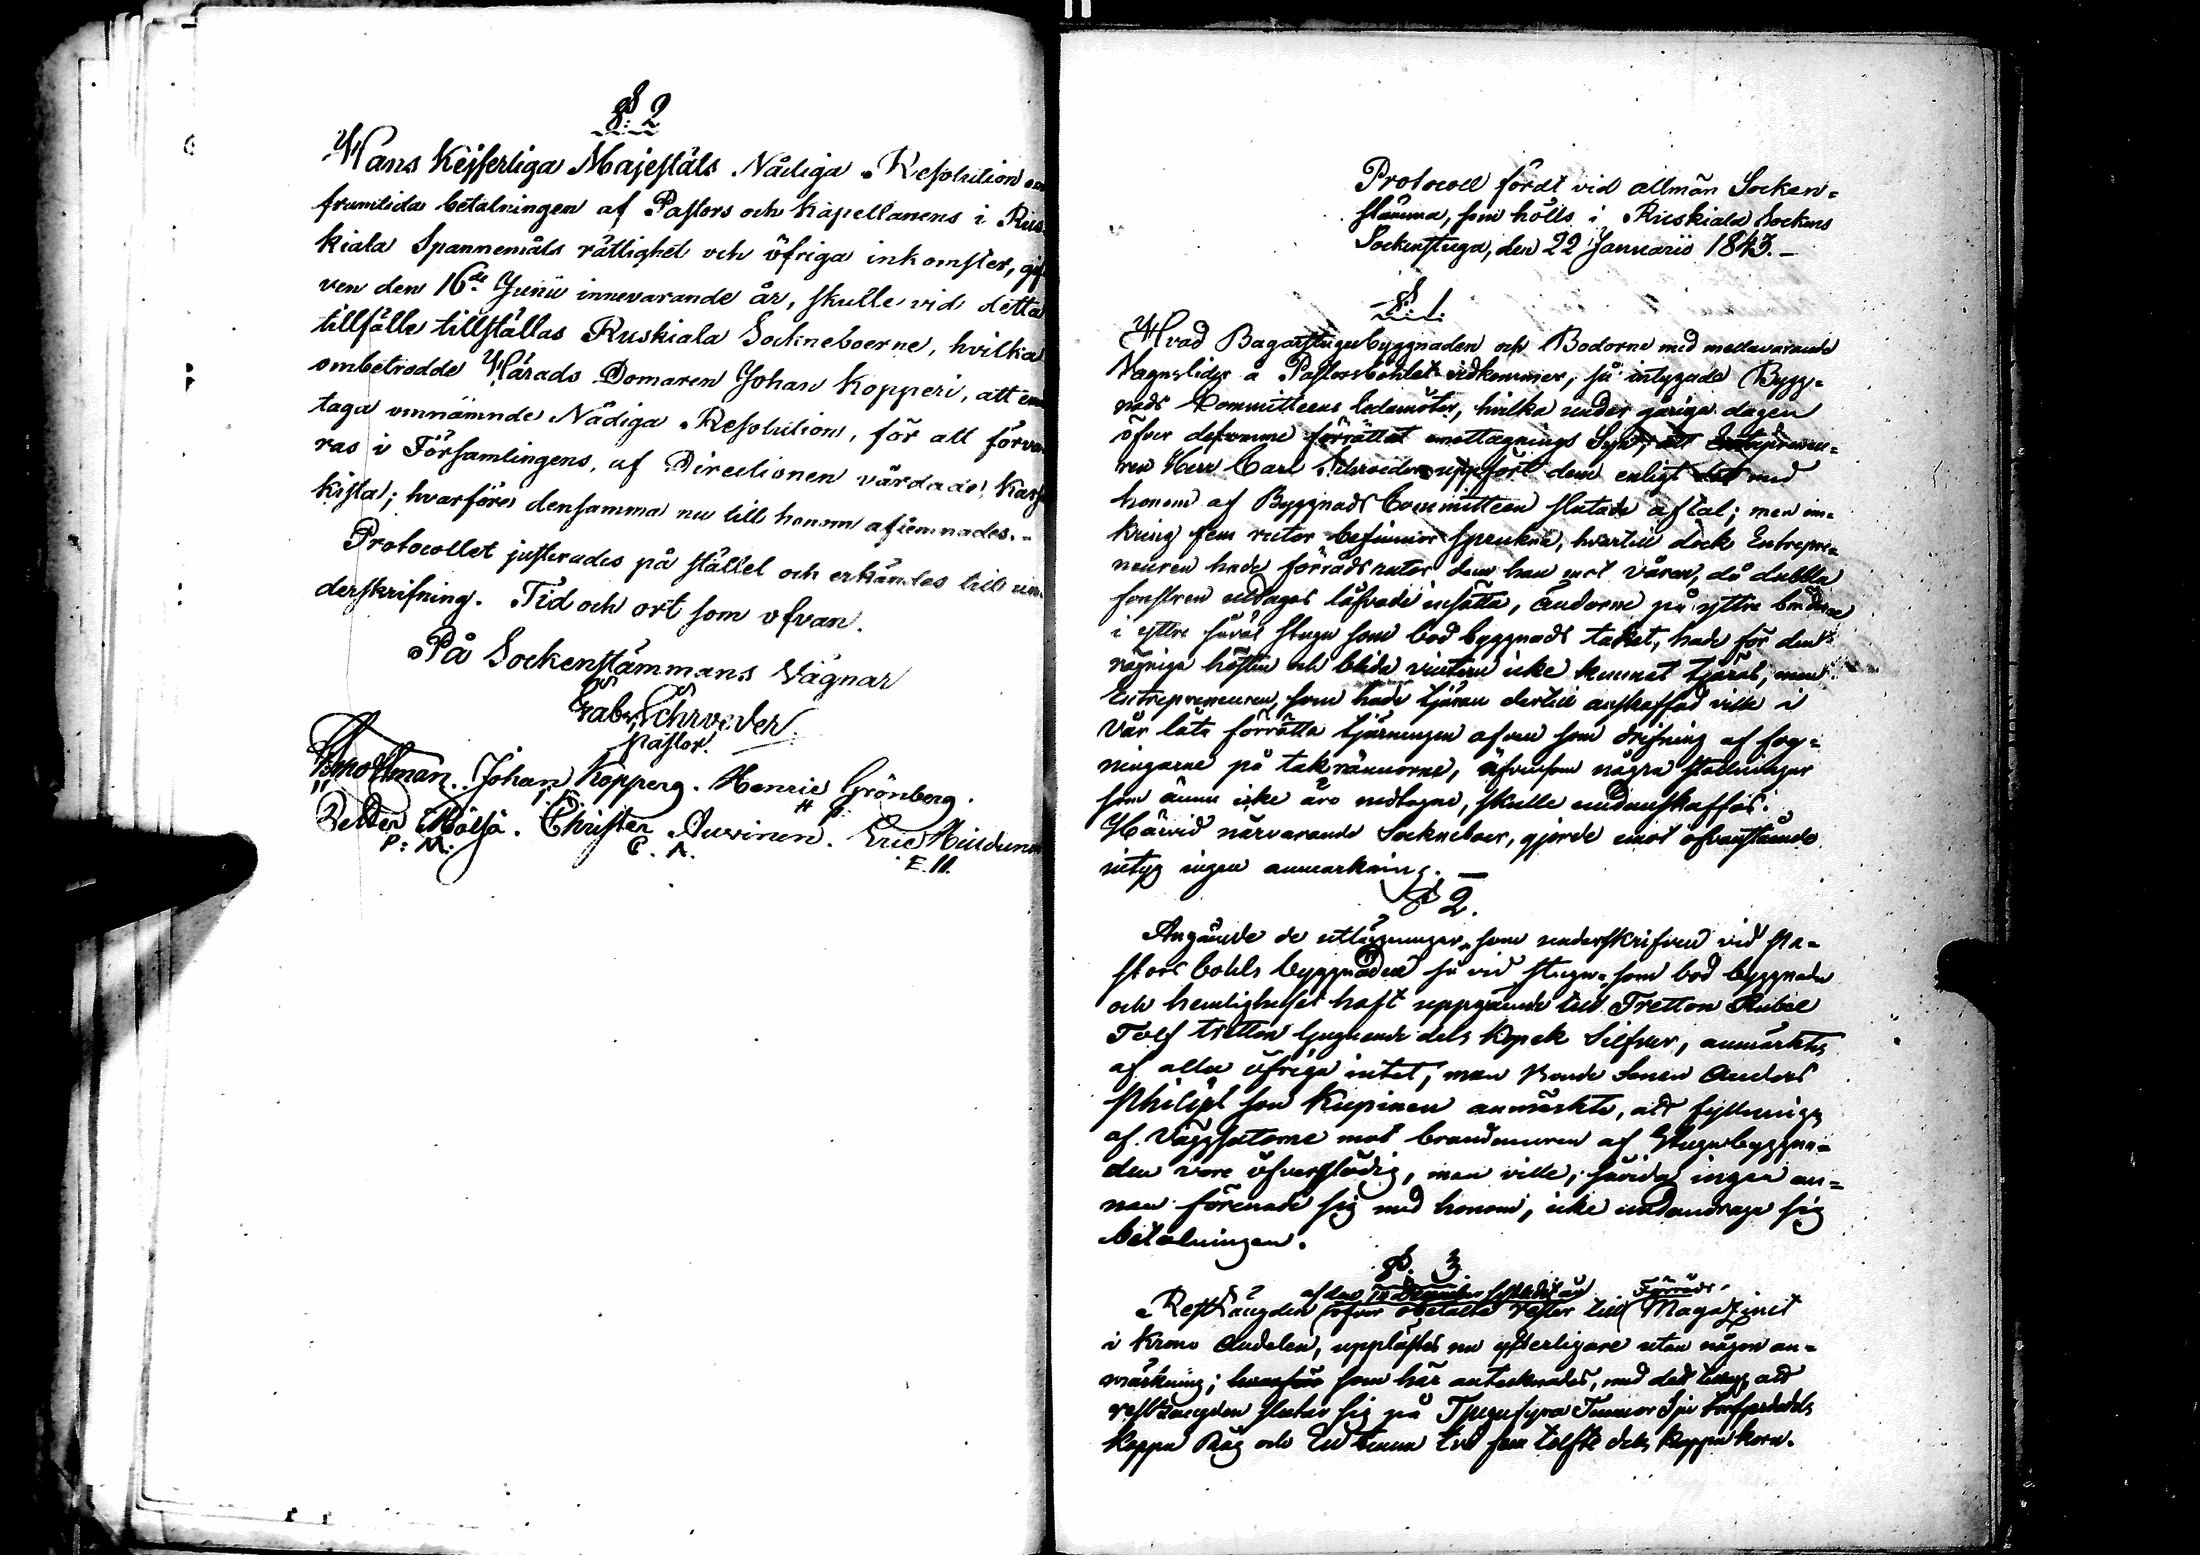 §. 2
Hans Kejserliga Majestäts Nådiga Resolution om
framtida betalningen af Pastors och Kapellanens i Rus-
kiala Spannemåls rättighet och öfriga inkomster, gif-
ven den 16de Junii innevarande år, skulle vid detta
tillfälle tillställas Ruskiala Sockneboerne, hvilka
ombetrodde Härads Domaren Johan Kopperi, att em
taga omnämnde Nådiga Resolution, för att förva
ras i Församlingens, af Directionen vårdade, Kass
kista; hvarföre densamma nu till honom aflemnades.
Protocollet justerades på stället och erkändes till un-
derskrifning. Tid och ort som ofvan.
På Sockenstämmans Vägnar
Gab. Schroeder
Pastor.
Johan Kopperi. Henric Grönberg.
Petter Mölsä. Christer Auvinen. Eric
P: M: C. A. E. H.
Protocoll fördt vid allmän Socken-
stämma, som hölls i Ruskiala Sockens
Sockenstuga, den 22 Januarii 1843.
§. 1.
Hvad Bagarstugubyggnaden och Bodorne med mellanvarande
Vagnslider å Pastorsbohlet vidkommer, så intygade Bygg-
nads Committeens ledamöter, hvilka under gårdagen
öfver desamme förrättat emottagnings Syn, att Entreprenen-
ren Herr Carl Schroeder uppfört dem enligt det med
honom af Byggnads Committeen slutade aftal; men om-
kring fem rutor befinnas spruckna, hvartill dock Entrepre-
neuren hade förråds rutor dem han mot våren, då dubbla
fönstren uttages låfvade insätta, ändorne på yttre bräderne
i yttre såväl stugu som bod byggnads taket, hade för den
rägniga hösten och blida vintern icke kunnat tjäras, men
Entrepreneuren, som hade tjäran dertill anskaffad ville i
vår låta förrätta tjärningen äfven som drifning af fog-
ningarne på takrännorne, äfvensom några ställningar
som ännu icke äro nedtagne, skulle undanskaffas.
Härvid närvarande Sockneboer, gjorde emot ofvanstående
intyg ingen anmärkning.
§ 2.
Angående de utlägningar, som underskrifven vid Pa-
stors bohls byggnaden så vid stugu- som bod byggnaden
och hemlighuset haft uppgående till Tretton Rubel
Tolf tretton tjugunde dels Kopek Silfver, anmärktes
af alla öfriga intet, men Bonde Sonen Anders
Philipsson Kupinen anmärkte, att fyllninge
af väggfaterne mot brandmuren af Stugubyggna-
den vore öfverflödig, men ville, såvida ingen an-
nan förenade sig med honom, icke undandraga sig
betalningen.
§. 3.
Restlängden öfver obetalte rester till Förråds Magazinet
i Krono Andelen, upplästes nu ytterligare utan någon an-
märkning; hvarföre som här antecknades, med det tillägg att
restlängden slutar sig på Tjugufyra Tunnor
Kappa Råg och En tunna två fem tolfte dels Kappa Korn.